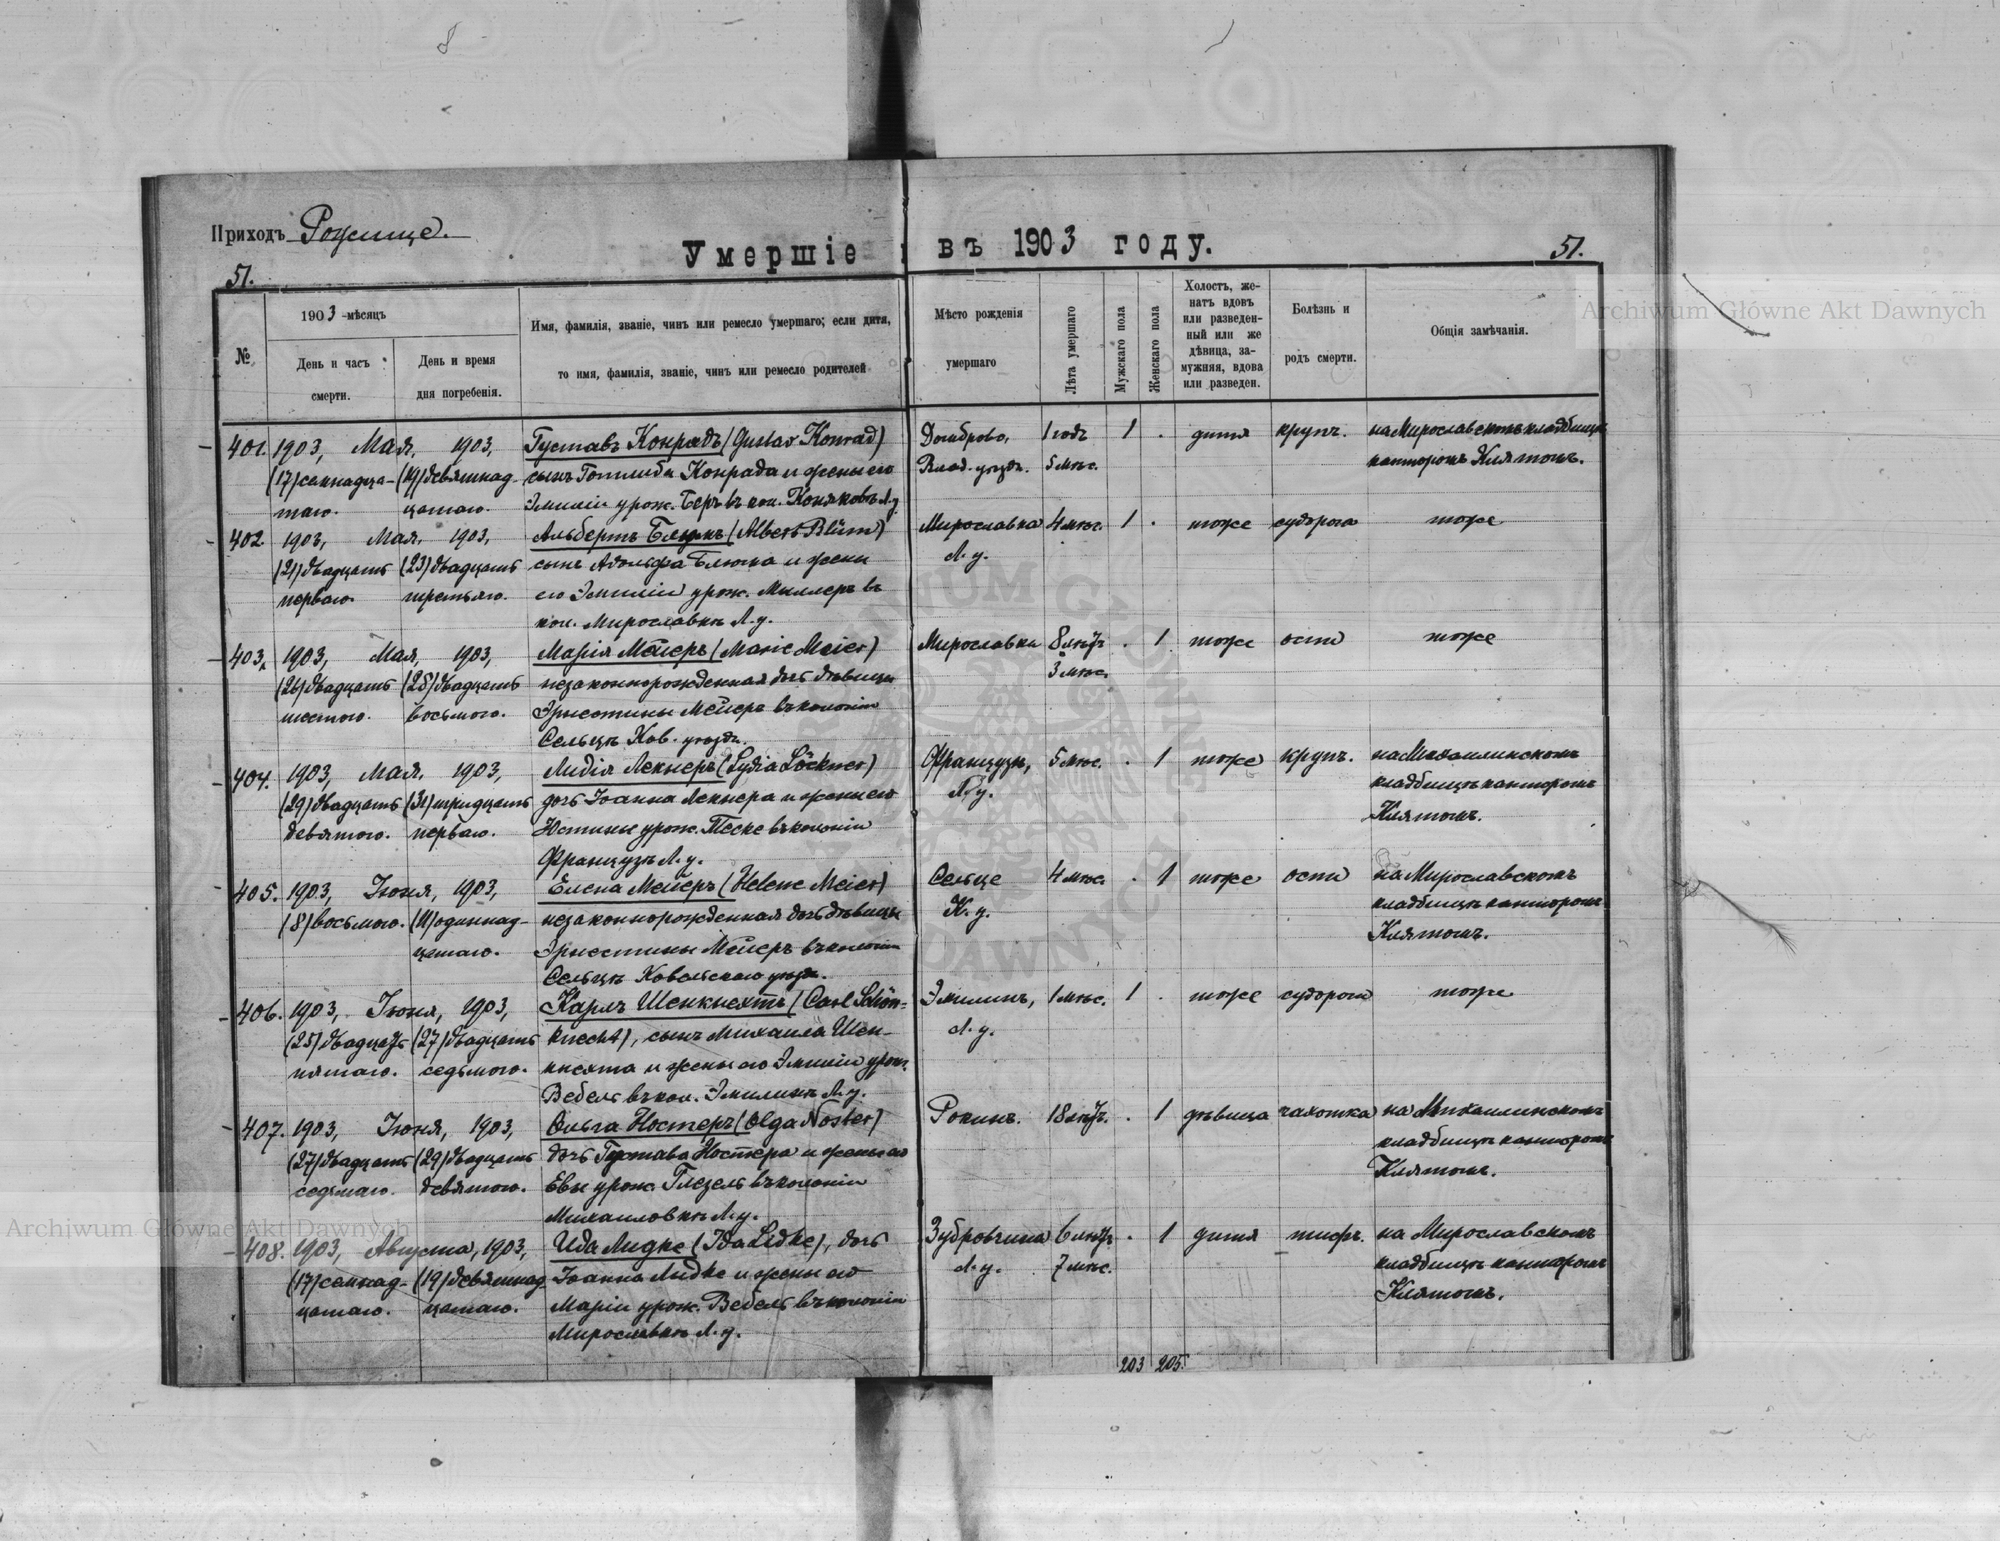 Приходъ Рожище.
Умершіе въ 1903 году.
51.
51.
№
1903-мѣсяцъ
День и часъ смерти.
День и время дня погребенія.
Имя, фамилія, званіе, чинъ или ремесло умершаго; если дитя,
то имя, фамилія, званіе, чинъ или ремесло родителей
Мѣсто рожденія
умершаго
Лѣта умершаго
Мужскаго пола
Женскаго пола
Холостъ, же-
натъ вдовъ
или разведен-
ный или же
дѣвица, за-
мужняя, вдова
или разведен.
Болѣзнь и
родъ смерти.
Общія замѣчанія.
401. 1903, Мая, 1903, Густавъ Конрадъ (Gustav Konrad) Домброво, 1 годъ 1 . дитя крупъ. на Мирославскомъ кладбищѣ
(17) семнадца- (19) девятнад- сынъ Готлиба Конрада и жены его Влад. уѣзда. 5 мѣс. канторомъ Клятомъ.
таго. цатаго. Эмиліи урож. Беръ въ кол. Коняковъ Л.у.
402. 1903, Мая, 1903, Альбертъ Блюмъ (Albert Blüm) Мирославка 4 мѣс. 1 . тоже судорога тоже
(21) двадцать (23) двадцать сынъ Адольфа Блюма и жены Л.у.
перваго. третьяго. его Эмиліи урож. Миллеръ въ
кол. Мирославкѣ Л.у.
403. 1903, Мая, 1903, Марія Мейеръ (Marie Meier) Мирославка 8 лѣтъ . 1 тоже оспа тоже
(26) двадцать (28) двадцать незаконнорожденная дочь дѣвицы 3 мѣс.
шестого. восьмого. Эрнестины Мейеръ въ колоніи
Сельцѣ Ков. уѣзда.
404. 1903, Мая, 1903, Лидія Лекнеръ (Lydia Löckner) Французъ, 5 мѣс. . 1 тоже крупъ. на Михаилинскомъ
(29) двадцать (31) тридцать дочь Іоанна Лекнера и жены его Л.у. кладбищѣ канторомъ
девятого. перваго. Юстины урож. Теске въ колоніи Клятомъ.
Французъ Л.у.
405. 1903, Іюня, 1903, Елена Мейеръ (Helene Meier) Сельце 4 мѣс. . 1 тоже оспа на Мирославскомъ
(8) восьмого. (11) одиннад- незаконнорожденная дочь дѣвицы К.у. кладбищѣ канторомъ
цатаго. Эрнестины Мейеръ въ колоніи Клятомъ.
Сельцѣ Ковельскаго уѣзда.
406. 1903, Іюня, 1903, Карлъ Шенкнехтъ (Carl Schön- Эмилинъ, 1 мѣс. 1 . тоже судорога тоже
(25) двадцать (27) двадцать knecht), сынъ Михаила Шен- Л.у.
пятаго. седьмого. кнехта и жены его Эмиліи урож.
Вебель въ кол. Эмилинъ Л.у.
407. 1903, Іюня, 1903, Ольга Ностеръ (Olga Noster) Рокинъ. 18 лѣтъ. . 1 дѣвица чахотка на Михаилинскомъ
(27) двадцать (29) двадцать дочь Густава Ностера и жены его кладбищѣ канторомъ
седьмаго. девятого. Евы урож. Глезель въ колоніи Клятомъ.
Михаиловкѣ Л.у.
408. 1903, Августа, 1903, Ида Лидке (Ida Lidke), дочь Зубровчина 6 лѣтъ . 1 дитя тифъ. на Мирославскомъ
(17) семнад- (19) девятнад- Іоанна Лидке и жены его Л.у. 7 мѣс. кладбищѣ канторомъ
цатаго. цатаго. Маріи урож. Вебель въ колоніи Клятомъ.
Мирославкѣ Л.у.
203 205.
Archiwum Główne Akt Dawnych
Archiwum Główne Akt Dawnych